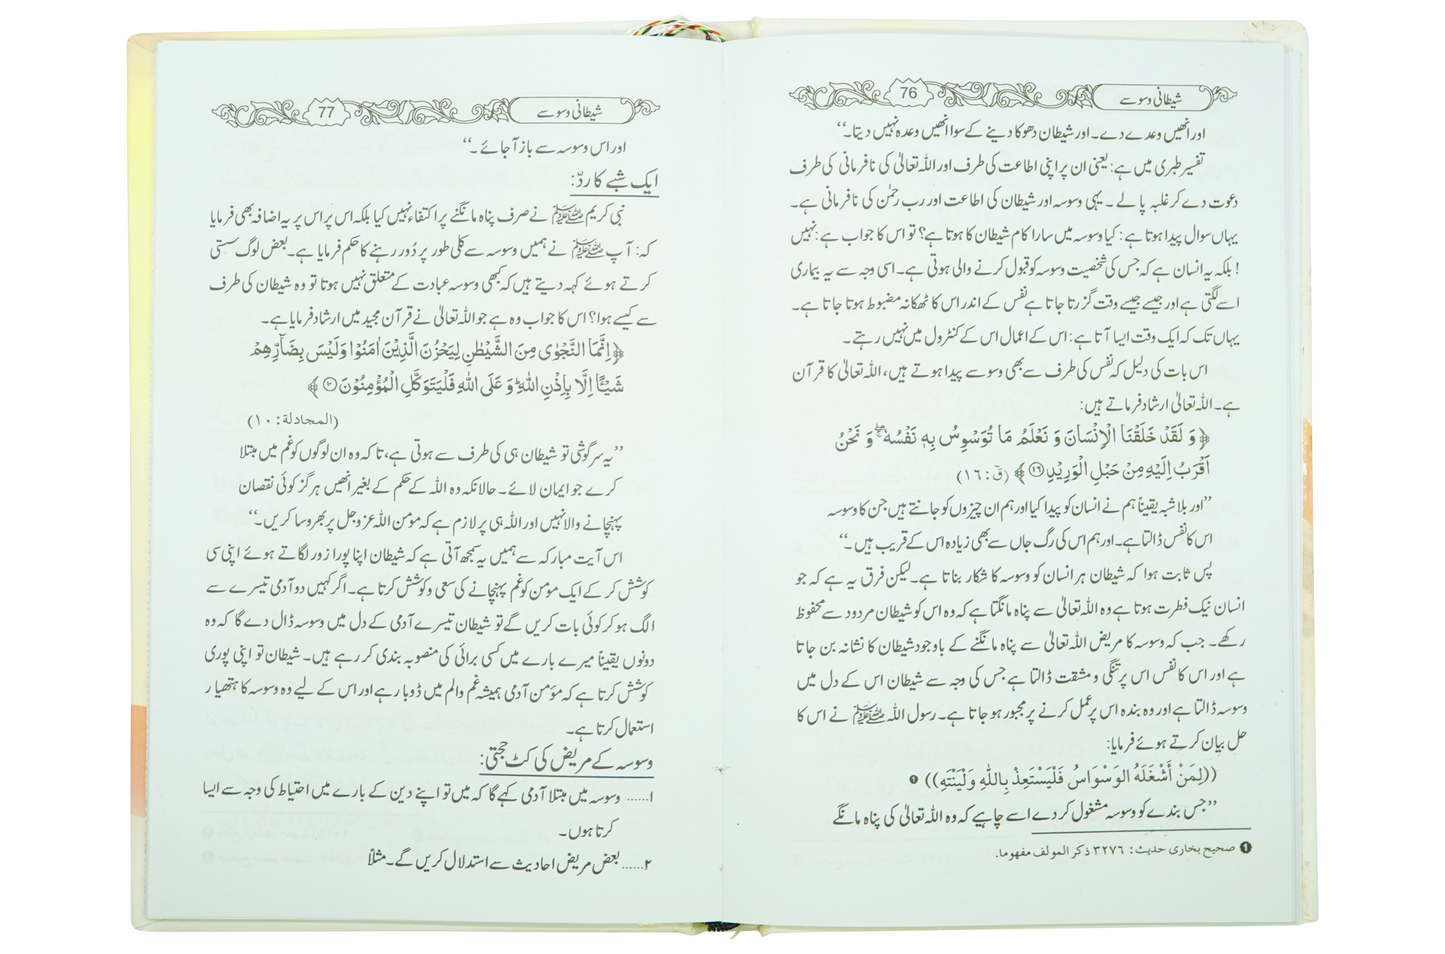 شیطانی وسوسے
76
اور انھیں وعدے دے۔ اور شیطان دھوکا دینے کے سوا انھیں وعدہ نہیں دیتا۔‘‘
تفسیر طبری میں ہے: یعنی ان پر اپنی اطاعت کی طرف اور اللہ تعالیٰ کی نافرمانی کی طرف
دعوت دے کر غلبہ پا لے ۔ یہی وسوسہ اور شیطان کی اطاعت اور رب رحمٰن کی نافرمانی ہے۔
یہاں سوال پیدا ہوتا ہے : کیا وسوسہ میں سارا کام شیطان کا ہوتا ہے؟ تو اس کا جواب ہے: نہیں
! بلکہ یہ انسان ہے کہ جس کی شخصیت وسوسہ کو قبول کرنے والی ہوتی ہے۔ اسی وجہ سے یہ بیماری
اسے لگتی ہے اور جیسے جیسے وقت گزرتا جاتا ہے نفس کے اندر اس کا ٹھکانہ مضبوط ہوتا جاتا ہے۔
یہاں تک کہ ایک وقت ایسا آتا ہے: اس کے اعمال اس کے کنٹرول میں نہیں رہتے ۔
اس بات کی دلیل کہ نفس کی طرف سے بھی وسوسے پیدا ہوتے ہیں، اللہ تعالیٰ کا قرآن
ہے۔ اللہ تعالیٰ ارشاد فرماتے ہیں:
﴿ وَ لَقَدْ خَلَقْنَا الْاِنْسَانَ وَ نَعْلَمُ مَا تُوَسْوِسُ بِهٖ نَفْسُهٗ ۖۚ وَ نَحْنُ
اَقْرَبُ اِلَيْهِ مِنْ حَبْلِ الْوَرِيْدِ۝۱۶ ﴾ (قٓ : ١٦)
’’اور بلاشبہ یقیناً ہم نے انسان کو پیدا کیا اور ہم ان چیزوں کو جانتے ہیں جن کا وسوسہ
اس کا نفس ڈالتا ہے۔ اور ہم اس کی رگ جاں سے بھی زیادہ اس کے قریب ہیں ۔‘‘
پس ثابت ہوا کہ شیطان ہر انسان کو وسوسہ کا شکار بناتا ہے۔ لیکن فرق یہ ہے کہ جو
انسان نیک فطرت ہوتا ہے وہ اللہ تعالیٰ سے پناہ مانگتا ہے کہ وہ اس کو شیطان مردود سے محفوظ
رکھے۔ جب کہ وسوسہ کا مریض اللہ تعالیٰ سے پناہ مانگنے کے باوجود شیطان کا نشانہ بن جاتا
ہے اور اس کا نفس اس پر تنگی و مشقت ڈالتا ہے جس کی وجہ سے شیطان اس کے دل میں
وسوسہ ڈالتا ہے اور وہ بندہ اس پر عمل کرنے پر مجبور ہو جاتا ہے۔ رسول اللہ ﷺ نے اس کا
حل بیان کرتے ہوئے فرمایا:
((لِمَنْ أَشْغَلَهُ الْوَسْوَاسُ فَلْيَسْتَعِذْ بِاللّٰهِ وَلْيَنْتَهِ)) ❶
’’جس بندے کو وسوسہ مشغول کر دے اسے چاہیے کہ وہ اللہ تعالیٰ کی پناہ مانگے
❶ صحیح بخاری حدیث : ٣٢٧٦ ذکر المولف مفهوما.
شیطانی وسوسے
77
اور اس وسوسہ سے باز آ جائے ۔‘‘
ایک شبے کا ردّ:
نبی کریم ﷺ نے صرف پناہ مانگنے پر اکتفاء نہیں کیا بلکہ اس پر اس پر یہ اضافہ بھی فرمایا
کہ: آپ ﷺ نے ہمیں وسوسہ سے کلی طور پر دُور رہنے کا حکم فرمایا ہے۔ بعض لوگ سستی
کرتے ہوئے کہہ دیتے ہیں کہ کبھی وسوسہ عبادت کے متعلق نہیں ہوتا تو وہ شیطان کی طرف
سے کیسے ہوا؟ اس کا جواب وہ ہے جو اللہ تعالیٰ نے قرآن مجید میں ارشاد فرمایا ہے۔
﴿ اِنَّمَا النَّجْوٰى مِنَ الشَّيْطٰنِ لِيَحْزُنَ الَّذِيْنَ اٰمَنُوْا وَ لَيْسَ بِضَآرِّهِمْ
شَيْـًٔا اِلَّا بِاِذْنِ اللّٰهِ وَ عَلَى اللّٰهِ فَلْيَتَوَكَّلِ الْمُؤْمِنُوْنَ۝۱۰ ﴾
(المجادلة : ١٠)
’’یہ سرگوشی تو شیطان ہی کی طرف سے ہوتی ہے، تاکہ وہ ان لوگوں کو غم میں مبتلا
کرے جو ایمان لائے۔ حالانکہ وہ اللہ کے حکم کے بغیر انھیں ہرگز کوئی نقصان
پہنچانے والا نہیں اور اللہ ہی پر لازم ہے کہ مؤمن اللہ عزوجل پر بھروسا کریں۔‘‘
اس آیت مبارکہ سے ہمیں یہ سمجھ آتی ہے کہ شیطان اپنا پورا زور لگاتے ہوئے اپنی سی
کوشش کر کے ایک مؤمن کو غم پہنچانے کی سعی و کوشش کرتا ہے۔ اگر کہیں دو آدمی تیسرے سے
الگ ہو کر کوئی بات کریں گے تو شیطان تیسرے آدمی کے دل میں وسوسہ ڈال دے گا کہ وہ
دونوں یقیناً میرے بارے میں کسی برائی کی منصوبہ بندی کر رہے ہیں۔ شیطان تو اپنی پوری
کوشش کرتا ہے کہ مؤمن آدمی ہمیشہ غم و الم میں ڈوبا رہے اور اس کے لیے وہ وسوسہ کا ہتھیار
استعمال کرتا ہے۔
وسوسہ کے مریض کی کٹ حجتی:
۱...... وسوسہ میں مبتلا آدمی کہے گا کہ میں تو اپنے دین کے بارے میں احتیاط کی وجہ سے ایسا
کرتا ہوں۔
۲...... بعض مریض احادیث سے استدلال کریں گے۔ مثلاً